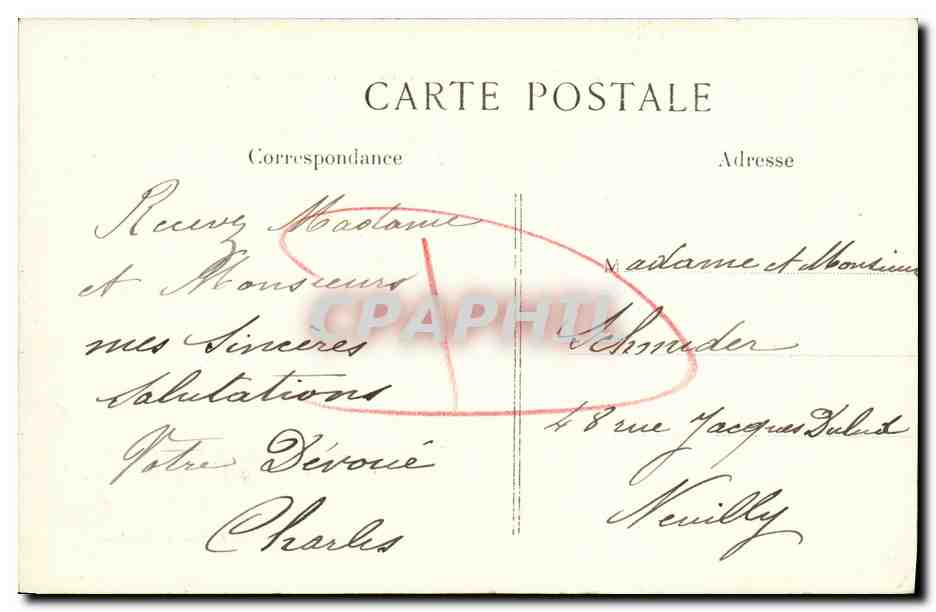 CARTE POSTALE
Correspondance
Adresse
Recevez Madame
et Monsieurs
mes Sincères
Salutations
Votre Dévoué
Charles
Madame et Monsieur
Schnider
48 rue Jacques Dulud
Neuilly
CPAPHIL